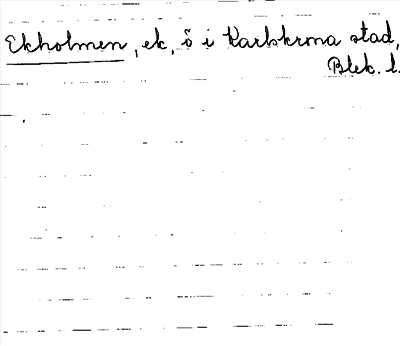 Ekholmen, ek, ö i Karlskrona stad,
Blek. l.